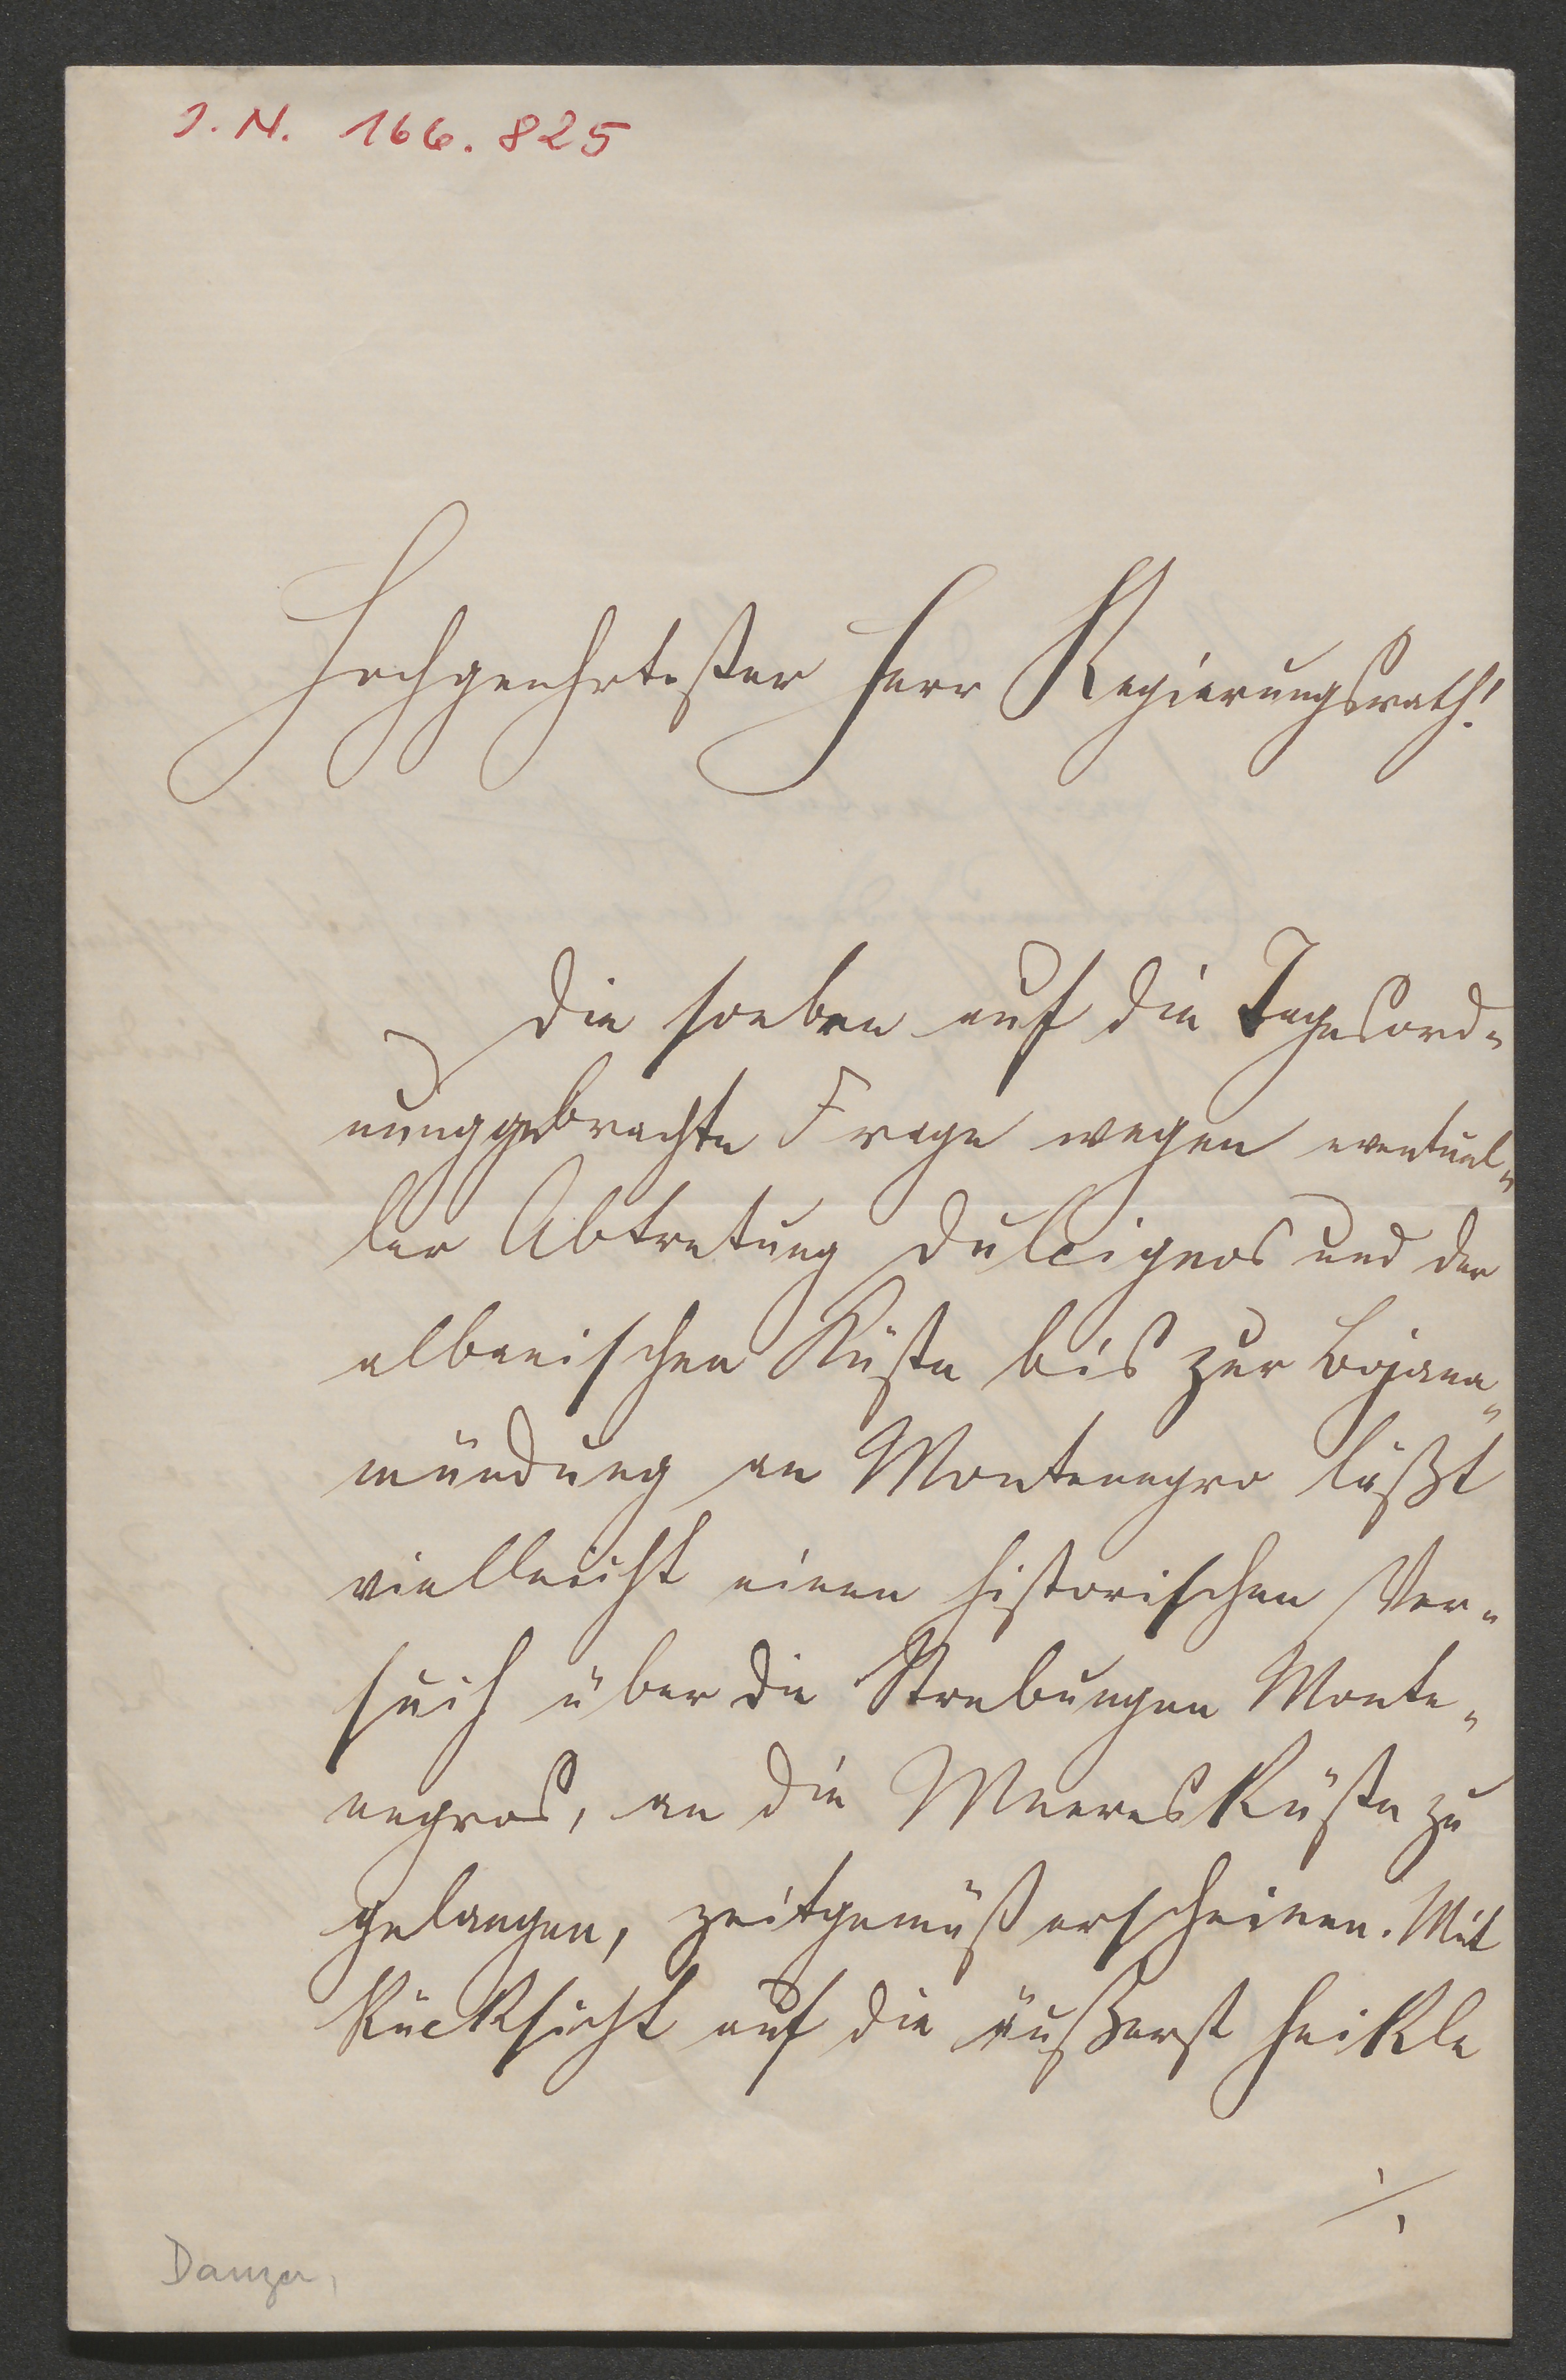 I. N. 166.825
Hochgeehrtester Herr Regierungsrath!
Die soeben auf die Tagesord-
nung gebrachte Frage wegen eventuel-
ler Abtretung Dulcignos und der
albanischen Küste bis zur Bojana-
mündung an Montenegro läßt
vielleicht einen historischen Ver-
such über die Strebungen Monte-
negros, an die Meeresküste zu
gelangen, zeitgemäß erscheinen. Mit
Rücksicht auf die äußerst heikle
./.
Danzer,